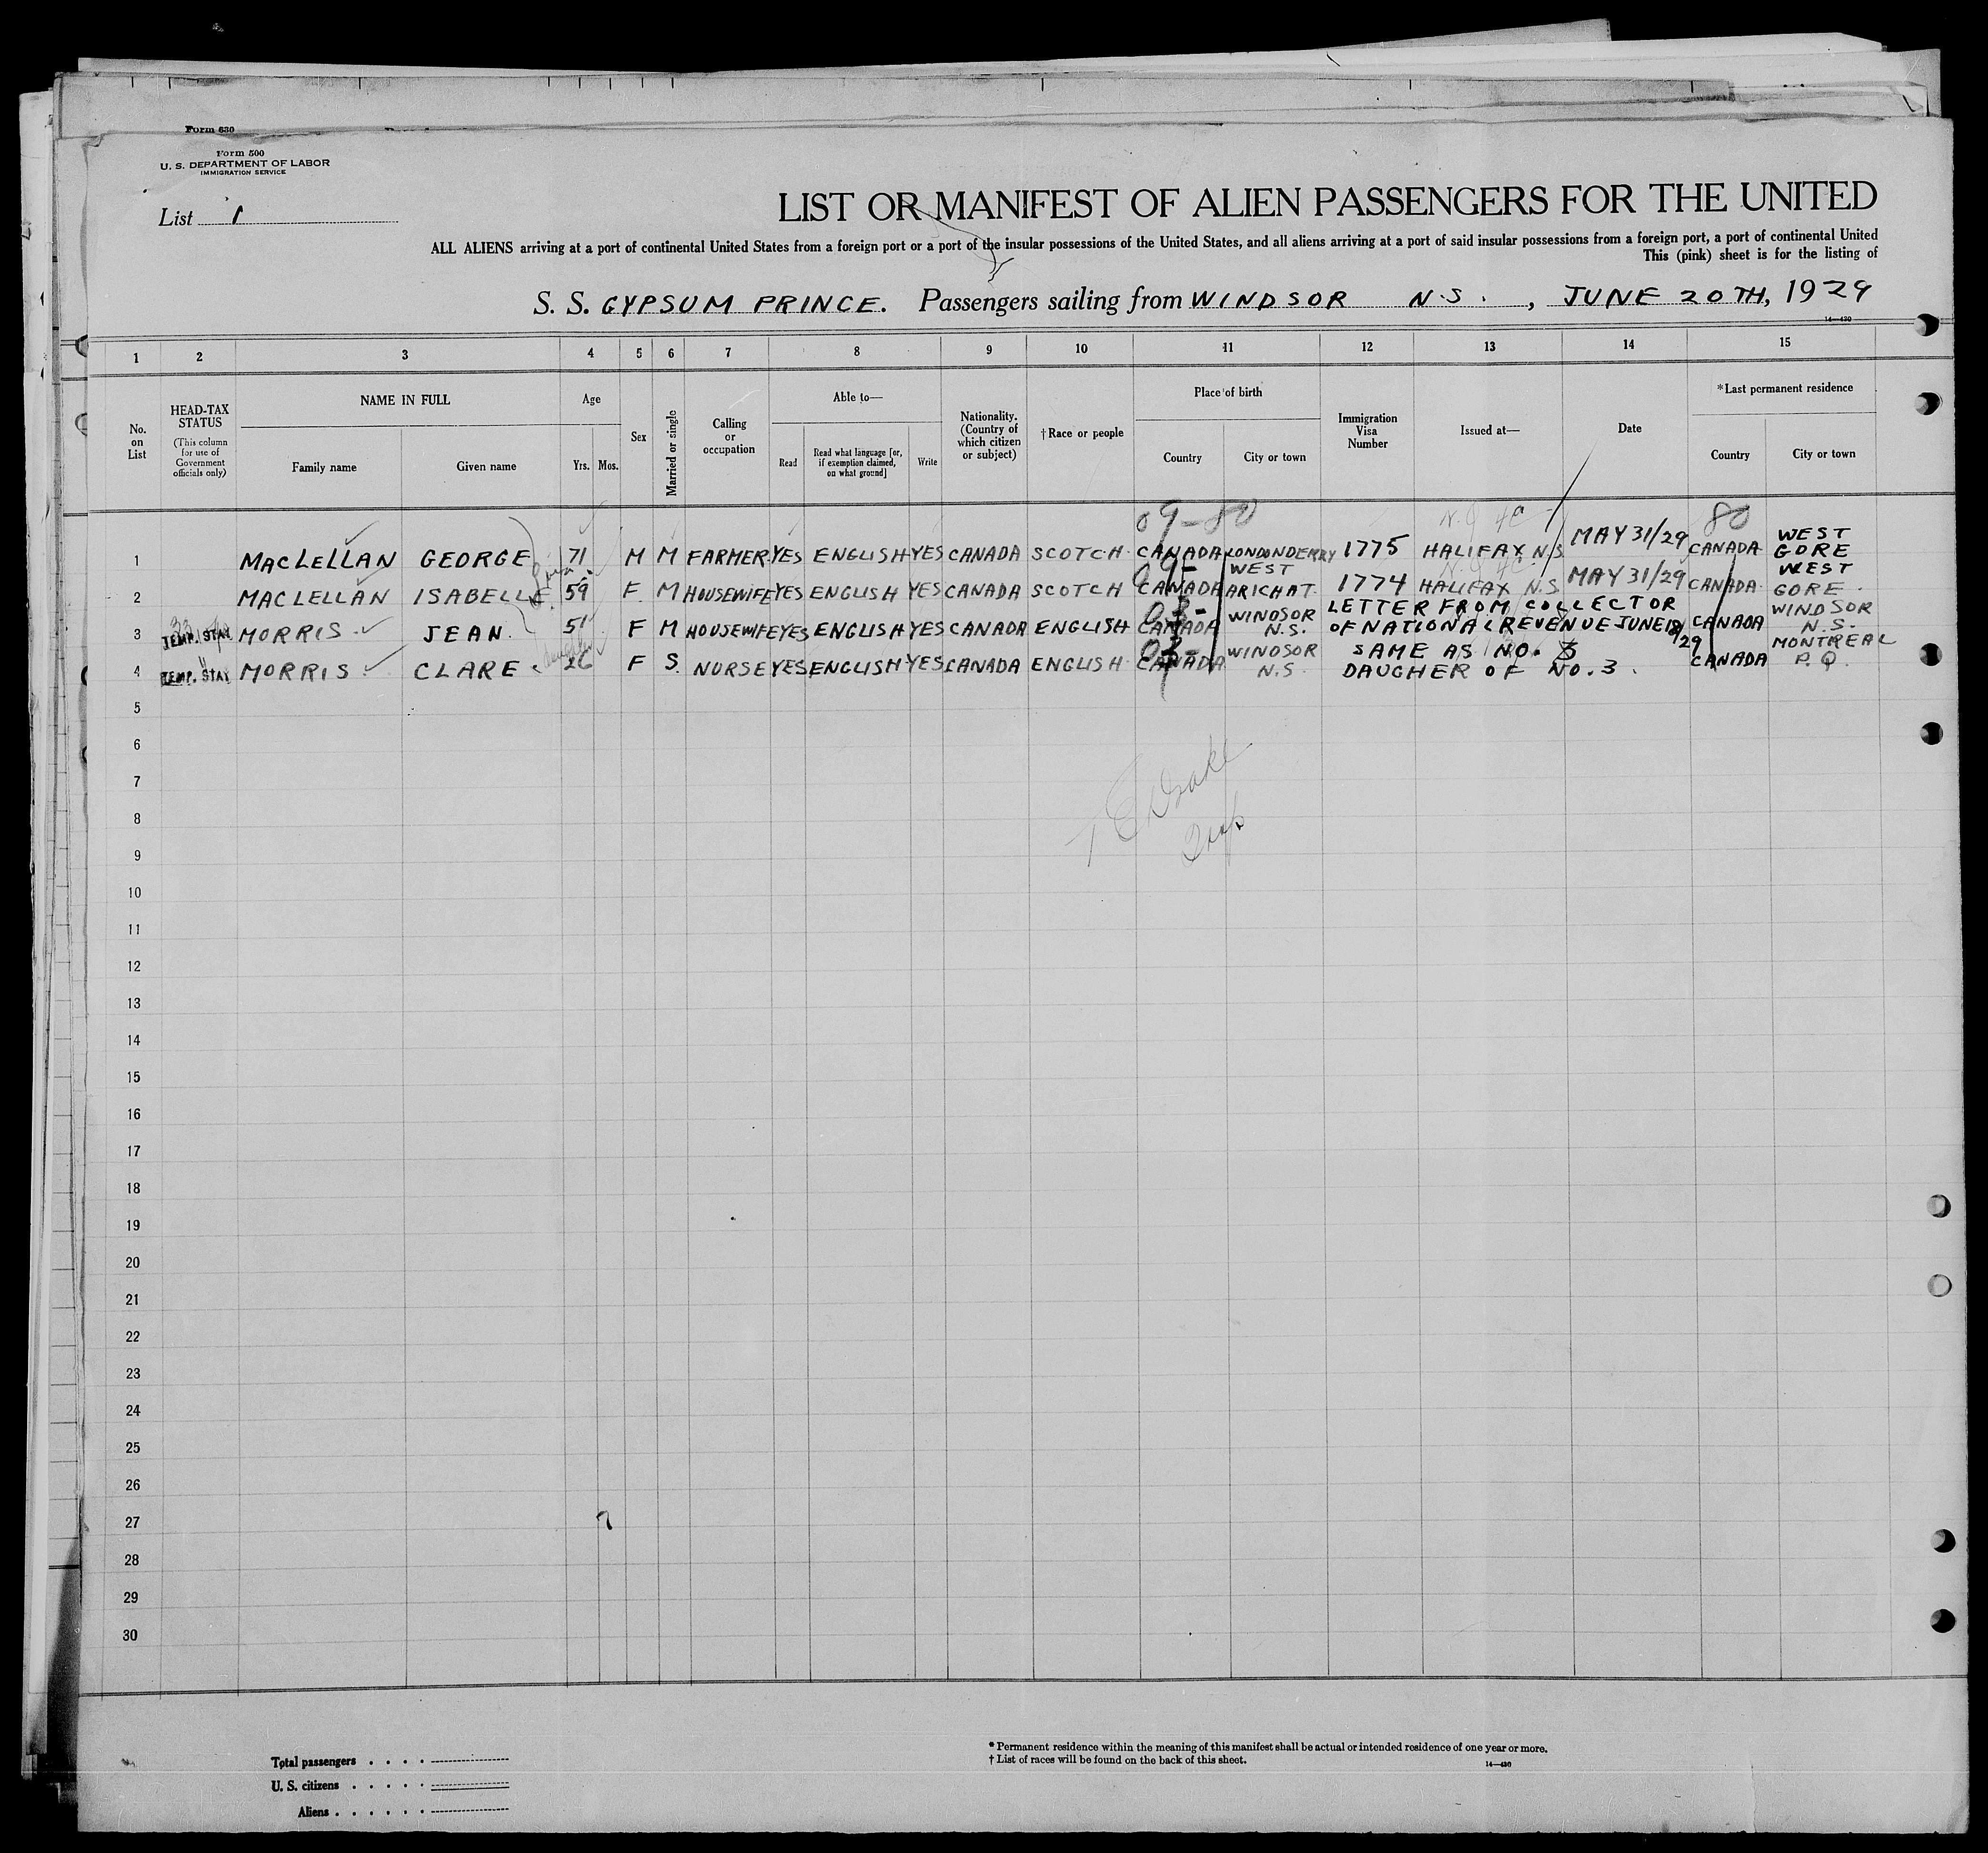 Form 630
Form 500
U. S. DEPARTMENT OF LABOR
IMMIGRATION SERVICE
List 1
LIST OR MANIFEST OF ALIEN PASSENGERS FOR THE UNITED
ALL ALIENS arriving at a port of continental United States from a foreign port or a port of the insular possessions of the United States, and all aliens arriving at a port of said insular possessions from a foreign port, a port of continental United
This (pink) sheet is for the listing of
S. S. GYPSUM PRINCE. Passengers sailing from WINDSOR N.S. , JUNE 20TH, 1929
14—430
1 2 3 4 5 6 7 8 9 10 11 12 13 14 15
No. on List
HEAD-TAX STATUS (This column for use of Government officials only)
NAME IN FULL
Family name Given name
Age
Yrs. Mos.
Sex
Married or single
Calling or occupation
Able to—
Read
Read what language [or, if exemption claimed, on what ground]
Write
Nationality. (Country of which citizen or subject)
†Race or people
Place of birth
Country City or town
Immigration Visa Number
Issued at—
Date
*Last permanent residence
Country City or town
09-80 80
1 MACLELLAN GEORGE 71 M M FARMER YES ENGLISH YES CANADA SCOTCH CANADA LONDONDERRY 1775 HALIFAX N.S MAY 31/29 CANADA WEST GORE
2 MACLELLAN ISABELLE 59 F M HOUSEWIFE YES ENGLISH YES CANADA SCOTCH CANADA WEST ARICHAT 1774 HALIFAX N.S MAY 31/29 CANADA WEST GORE
3 TEMP. STAY MORRIS JEAN 51 F M HOUSEWIFE YES ENGLISH YES CANADA ENGLISH 03- CANADA WINDSOR N.S. LETTER FROM COLLECTOR OF NATIONAL REVENUE JUNE 18/29 CANADA WINDSOR N.S.
4 TEMP. STAY MORRIS CLARE 26 F S. NURSE YES ENGLISH YES CANADA ENGLISH 03- CANADA WINDSOR N.S. SAME AS NO. 3 DAUGHER OF NO. 3. CANADA MONTREAL P.Q.
5
6
7
8
9
10
11
12
13
14
15
16
17
18
19
20
21
22
23
24
25
26
27
28
29
30
Total passengers
U. S. citizens
Aliens
* Permanent residence within the meaning of this manifest shall be actual or intended residence of one year or more.
† List of races will be found on the back of this sheet.
14—430